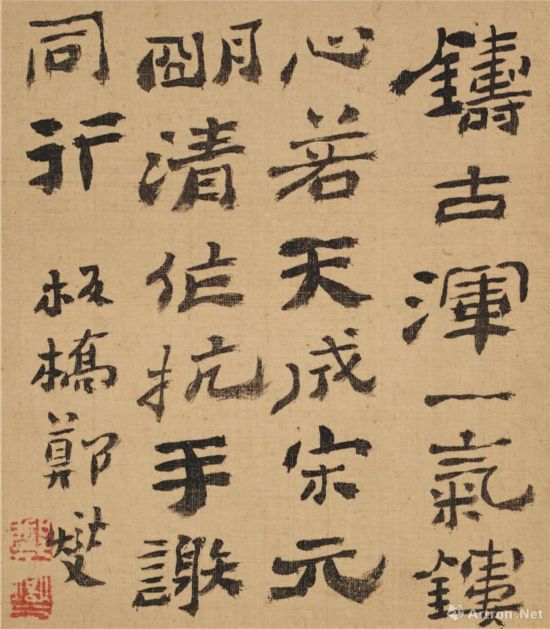 鑄古渾一氣鏤
心若天成宋元
朙清作抗手謝
同行
板橋鄭燮
Artron.Net